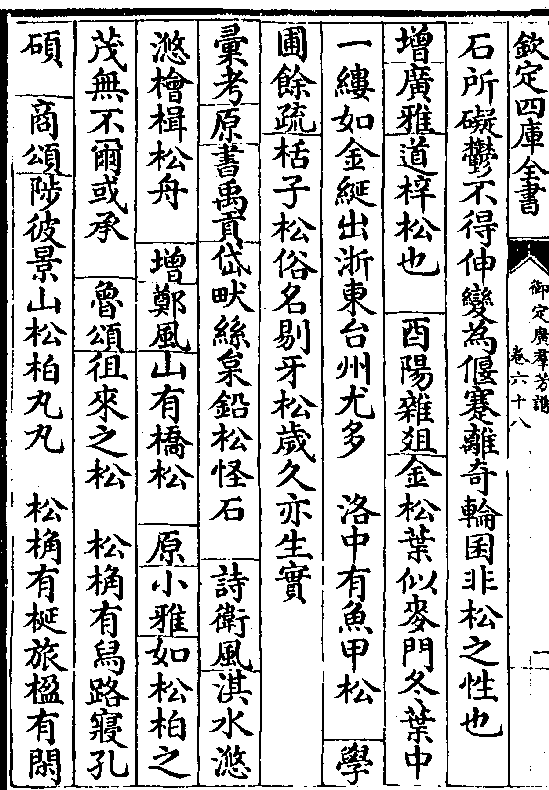 欽定四庫全書
御定廣羣芳譜
卷六十八
一
石所礙鬱不得伸變為偃蹇離奇輪囷非松之性也
增廣雅道梓松也 酉陽雜俎金松葉似麥門冬葉中
一縷如金綖出浙東台州尤多 洛中有魚甲松 學
圃餘疏栝子松俗名剔牙松歲久亦生實
彚考原書禹貢岱畎絲枲鉛松怪石 詩衛風淇水滺
滺檜楫松舟 增鄭風山有橋松 原小雅如松柏之
茂無不爾或承 魯頌徂來之松 松桷有舄路寢孔
碩 商頌陟彼景山松柏丸丸 松桷有梴旅楹有閑